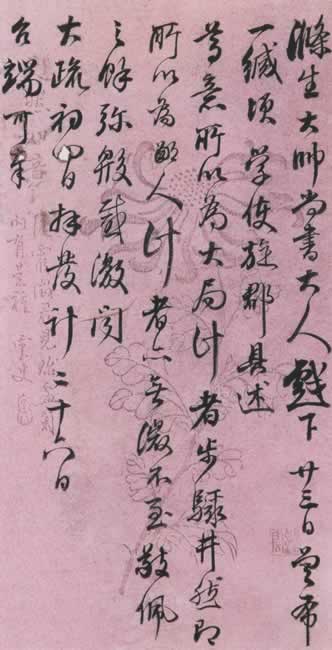 滌生大帥尚書大人戲下廿三日曾布
一緘頃学使旋郡具述
尊意所以為大局計者步驟井然即
所以為鄙人計者亦無微不至敬佩
之餘彌殷感激閱
大疏初四日拜發計二十六日
台端可奉